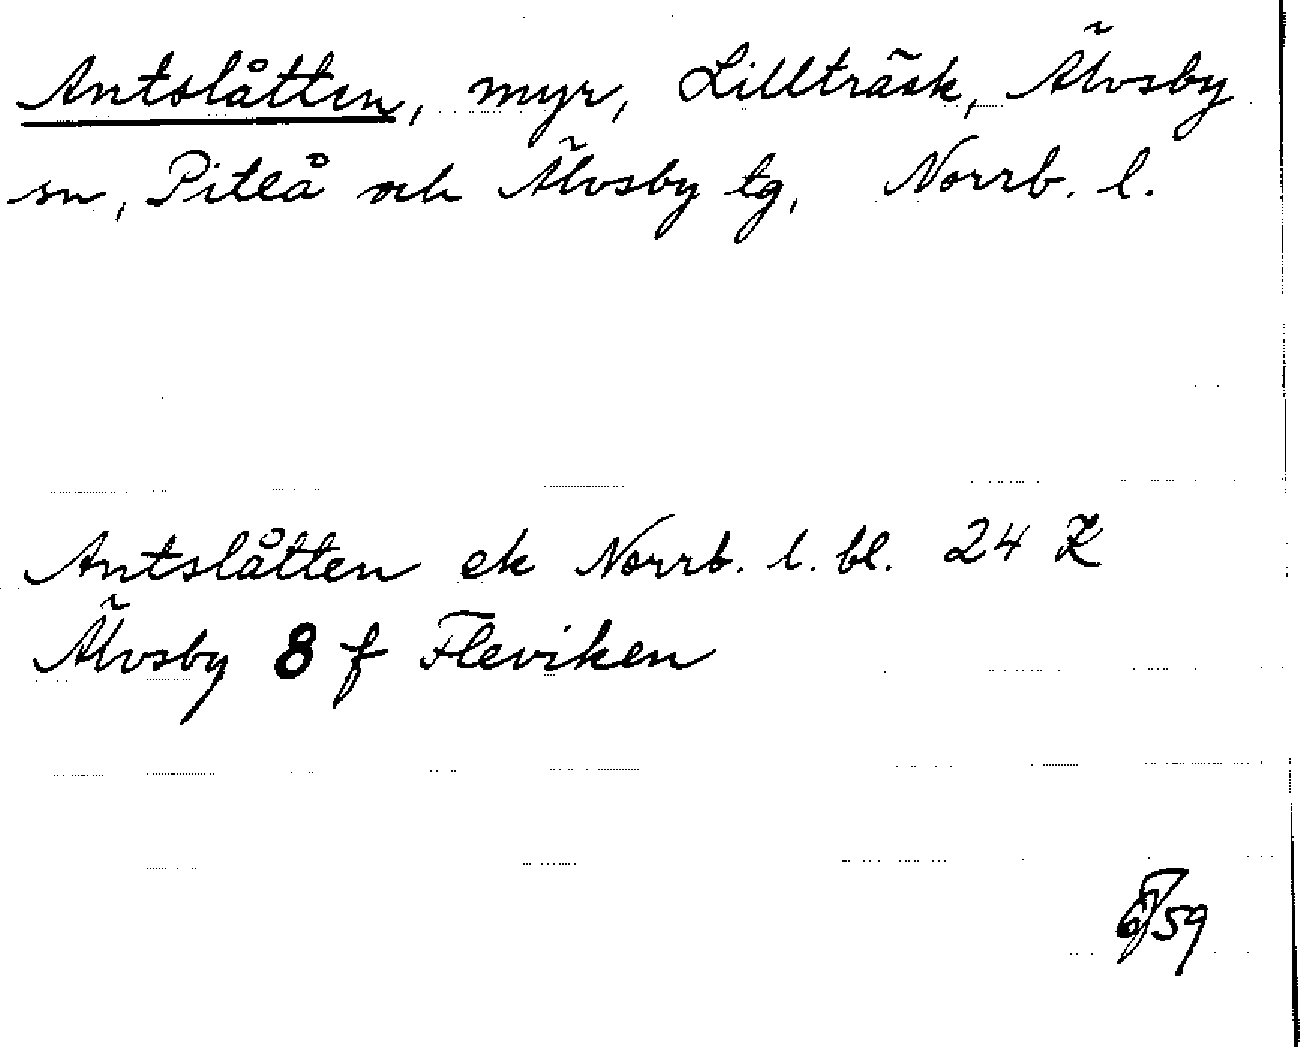 Antslåtten, myr, Lillträsk, Älvsby
sn, Piteå och Älvsby tg, Norrb. l.
Antslåtten ek Norrb. l. bl. 24 K
Älvsby 8 f Fleviken
59